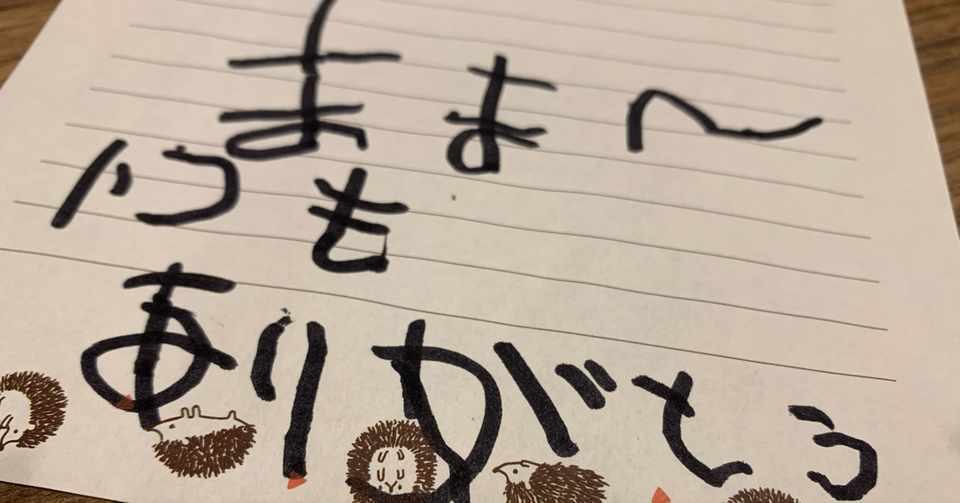 まま〜
いつも
ありがとう